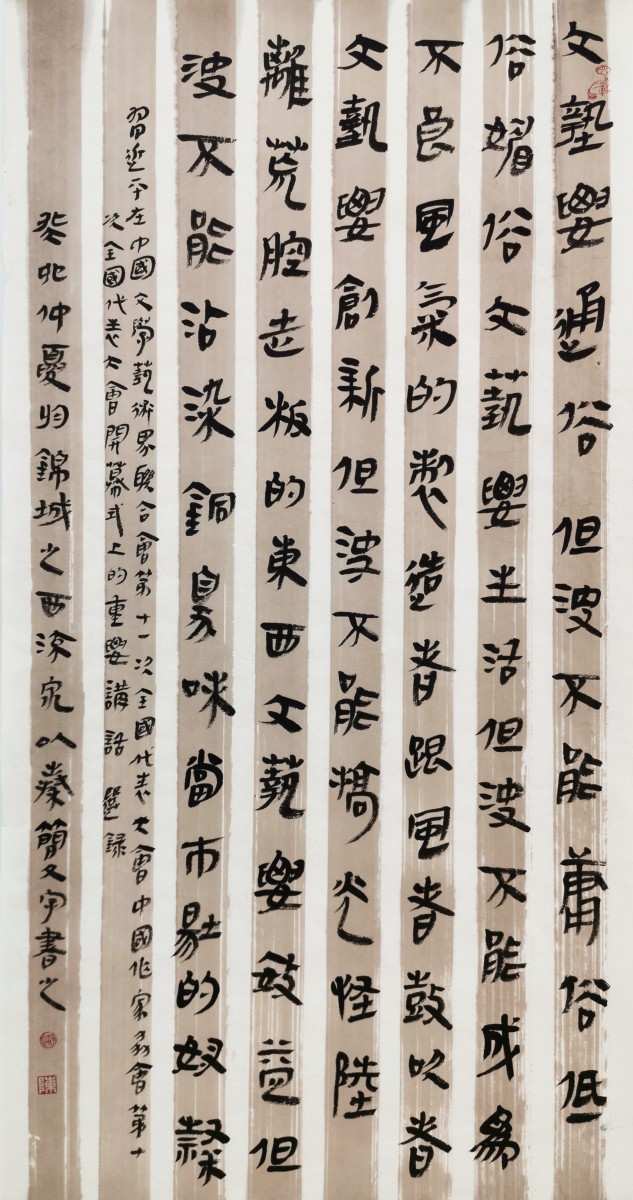 文藝要通俗但決不能庸俗低
俗媚俗文藝要生活但決不能成為
不良風氣的製造者跟風者鼓吹者
文藝要創新但決不能搞光怪陸
離荒腔走板的東西文藝要效益但
決不能沾染銅臭味當市場的奴隸
習近平在中國文學藝術界聯合會第十一次全國代表大會中國作家協會第十
次全國代表大會開幕式上的重要講話選錄
癸卯仲夏归錦城之西以秦簡文字書之
陳